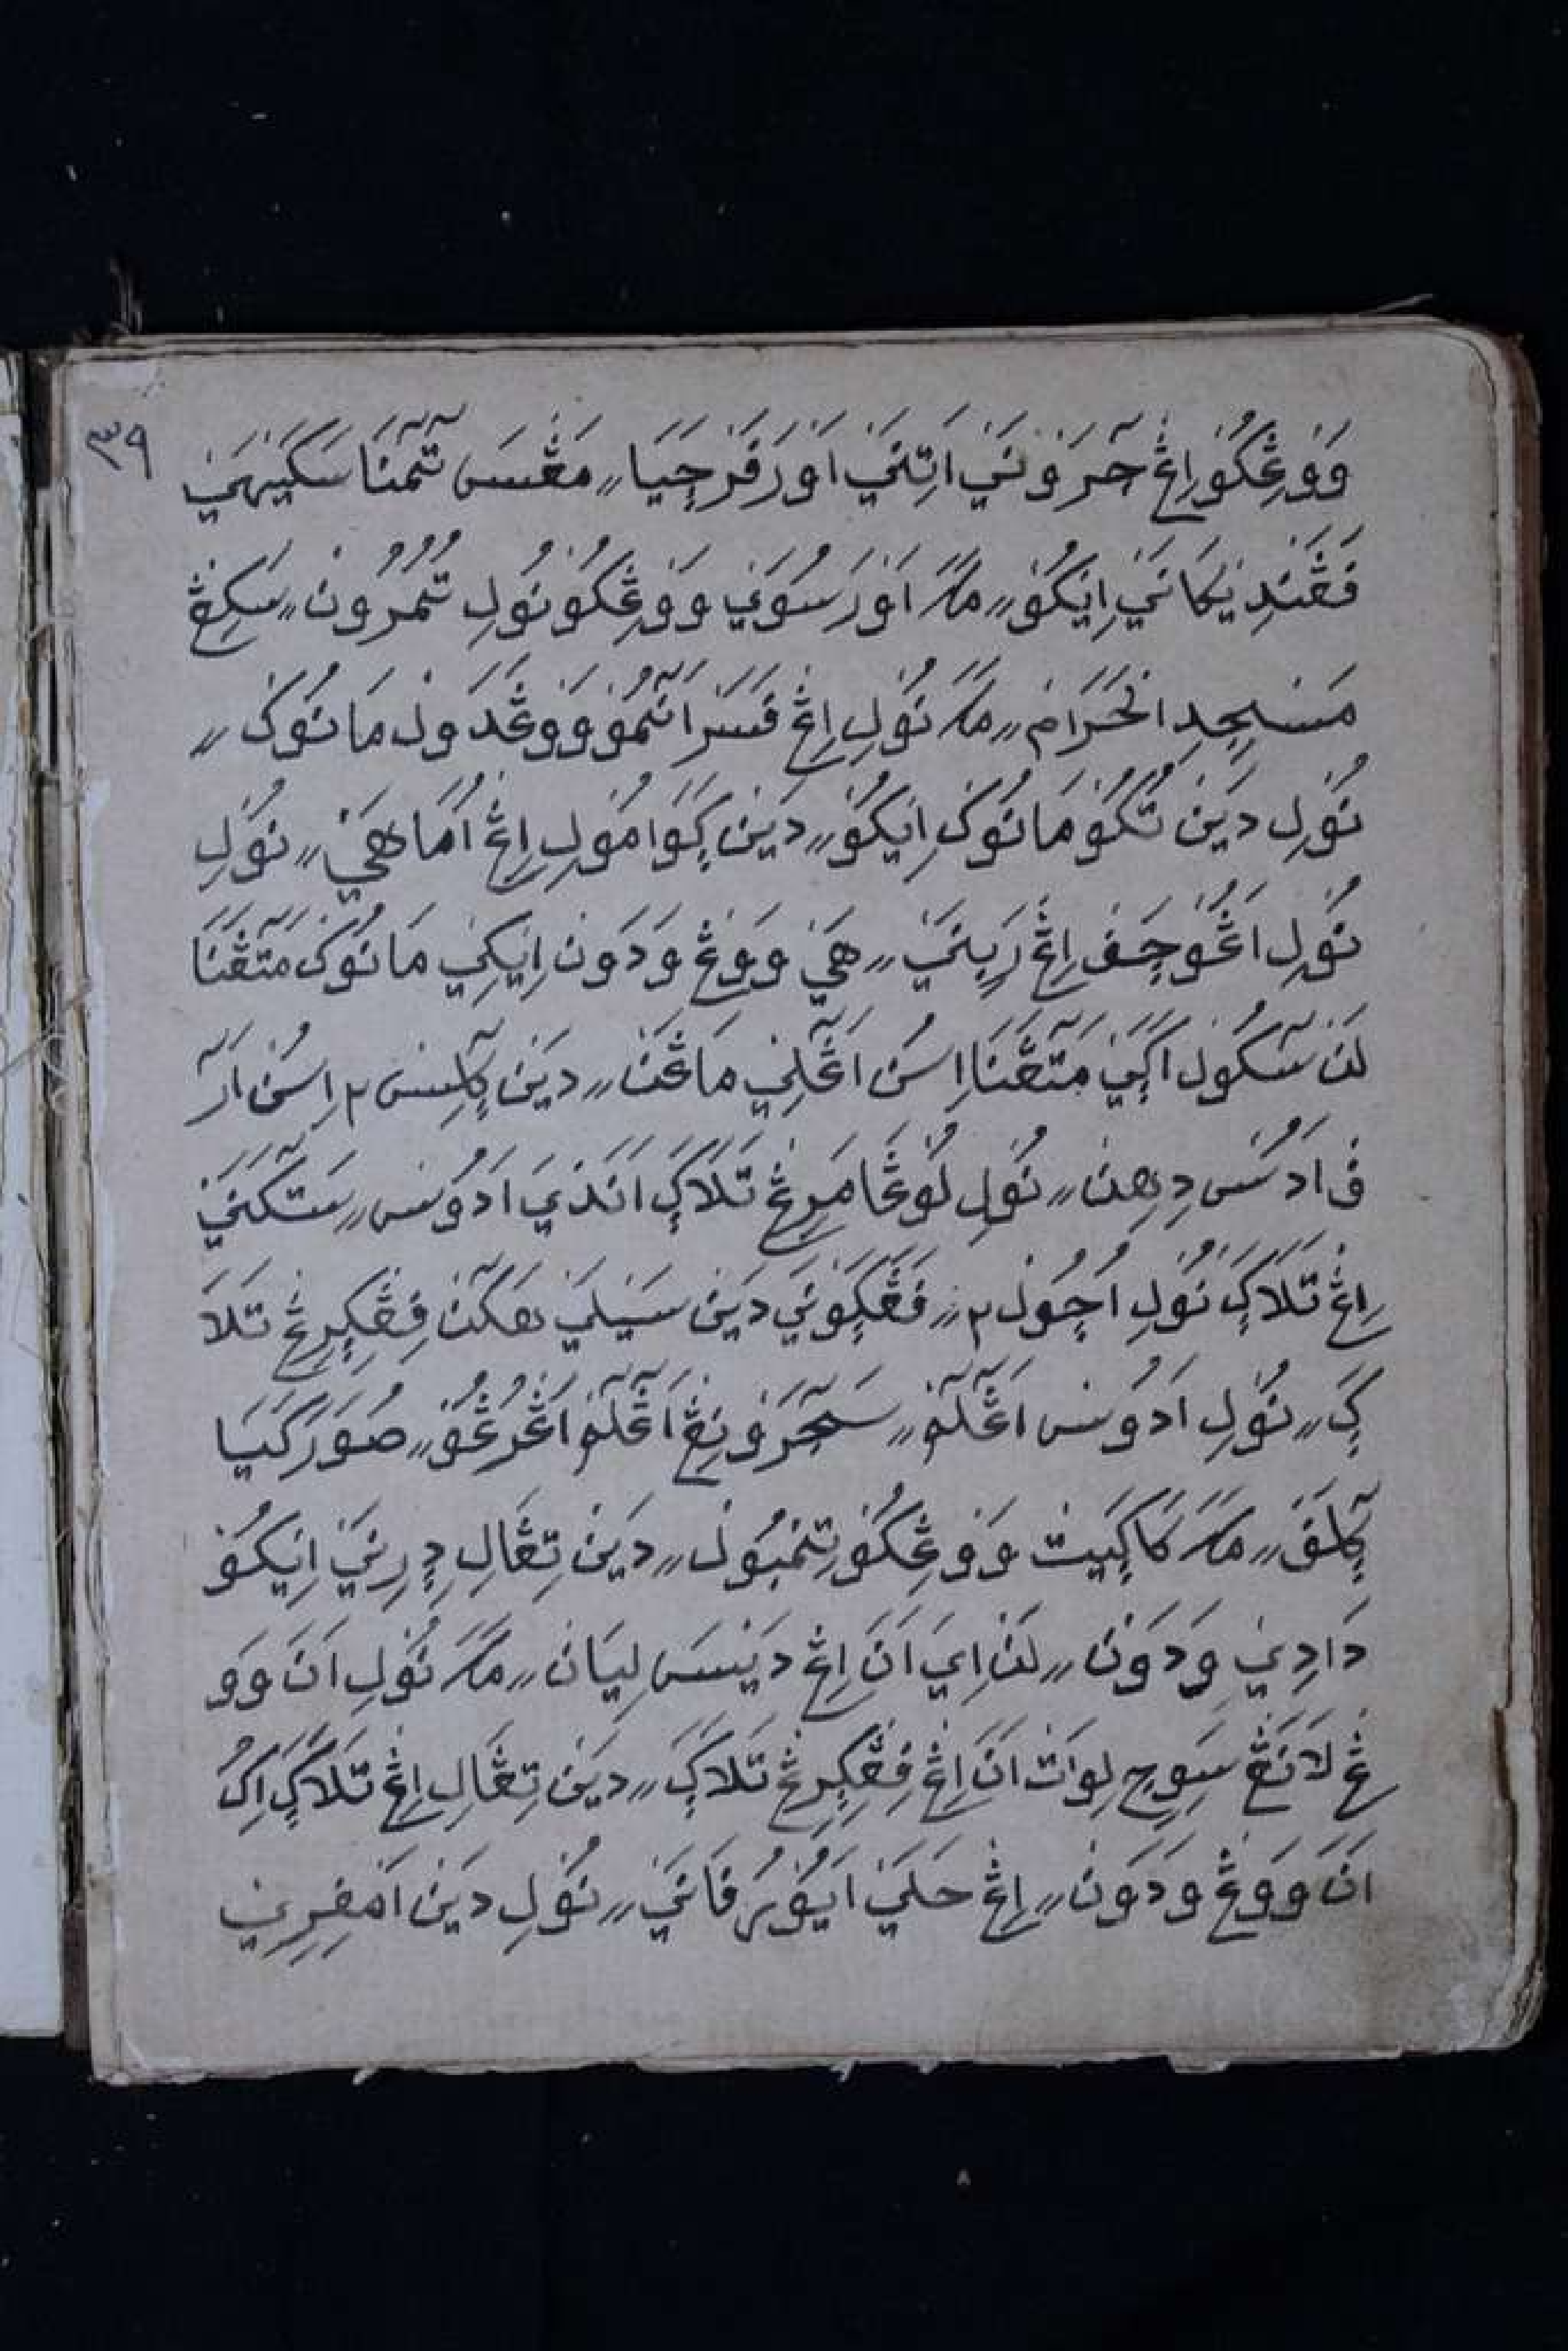 ٣٩
وَوَڠْكُوْ اِڠْ جٓرَوْنَيْ اَتِنَيْ اَوْرَ فَرْچَيَا ⸗ مَڠْسَ تٓمَنَا سَكَيَهَيْ
فَڠَنْدِيْكَانَيْ اِيْكُوْ ⸗ مَكَ اَوْرَ سُوَيْ وَوْڠِكُوْ نُوْلِ تُمُرُوْنْ ⸗ سَكِڠْ
مَسْجِدِ الْحَرَامْ ⸗ مَكَ نُوْلِ اِڠْ فَسَرْ اَتٓمُوْ وَوْڠْ دَوْلْ مَانُوْكْ ⸗
نُوْلِ دَيْنْ تُكُوْ مَانُوْكْ اِيْكُوْ ⸗ دَيْنْ ڮَوَا مُوْلِ اِڠْ اُمَاهَيْ ⸗ نُوْلِ
نُوْلِ اَڠُوْچَفْ اِڠْ رَبِيْنَيْ ⸗ هَيْ وَوْڠْ وَدَوْنْ اِيْكِيْ مَانُوْكْ مَتٓڠَنَا
لَنْ سٓكُوْلْ اَڮَيْ مَتٓڠَنَا اِسُنْ اَڠٓلِيْ مَاڠَنْ ⸗ دَيْنْ ڮٓلِيْسْ ٢ اِسُنْ اَرٓ
فْ اَدُسْ دِهِنْ ⸗ نُوْلِ لُوْڠَا مَرِڠْ تَلَاڮَ اَنْدَيَ اَدُوْسْ ⸗ سَتٓكَنَيْ
اِڠْ تَلَاڮَ نُوْلِ اُچُوْلْ ٢ ⸗ فَڠَڮَوْنَيْ دَيْنْ سَيْلَيْهَكٓنْ فِڠْڮِرِڠْ تَلَا
ڮَ ⸗ نُوْلِ اَدُوْسْ اَڠٓلٓمْ ⸗ سَجٓرَوْنِڠْ اَڠٓلٓمْ اَڠْرُڠُوْ ⸗ صُوَرَ كَيَا
ڮٓلَفْ ⸗ مَكَ كَاڮَيْتْ وَوْڠِكُوْ تِمْبُوْلْ ⸗ دَيْنْ تِڠَالِ دِرِيْنَيْ اِيْكُوْ
دَادِيْ وَدَوْنْ ⸗ لَنْ اِيَ اَنَ اِڠْ دَيْسَ لِيَانْ ⸗ مَكَ نُوْلِ اَنَ وَوْ
ڠْ لَانَڠْ سَوِجِ لِوَاتْ اَنَ اِڠْ فِڠْڮِرِڠْ تَلَاڮَ ⸗ دَيْنْ تِڠَالِ اِڠْ تَلَاڮَ اِكُ
اَنَ وَوْڠْ وَدَوْنْ ⸗ اِڠْ حَلَيْ اَيُوْ رُفَانَيْ ⸗ نُوْلِ دَيْنْ اَمْفِرِيْ